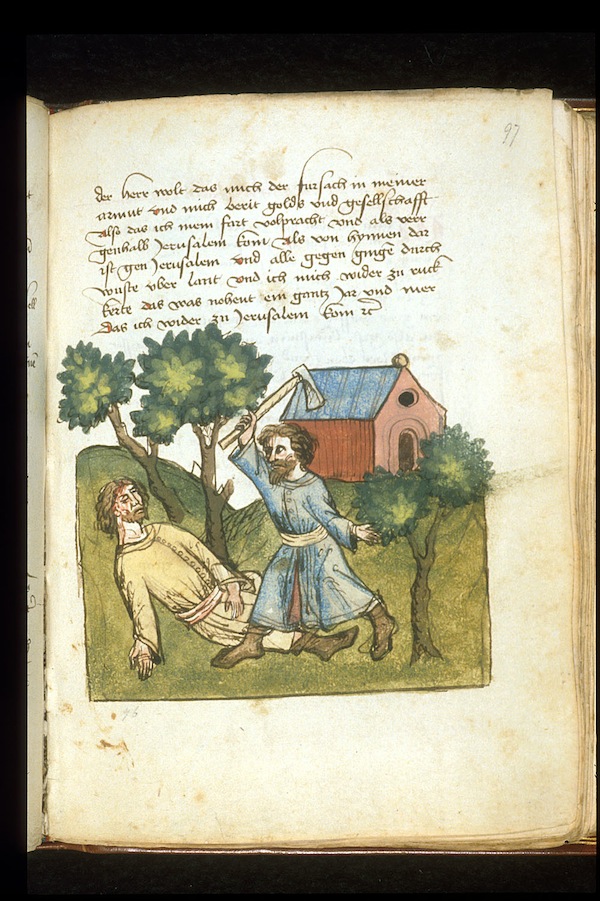 97
der herr wolt das mich der fursach in meiner
armut vnd mich berit golds vnd gesellschafft
Also das ich mein fart volpracht vnd als verr
genhalb Jerusalem kom als von hynnen dar
ist gen Jerusalem vnd alle gegen ginge durch
wuste vber lant vnd ich mich wider zu ruck
kerte das was nohent ein gantz Jar vnd mer
Das ich wider zu Jerusalem kom